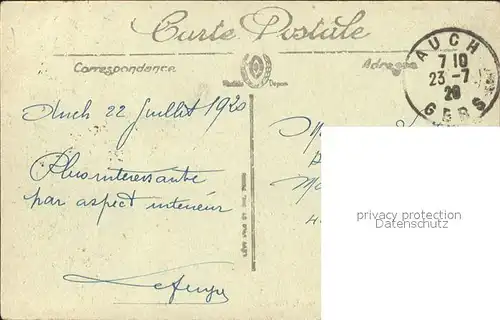 Carte Postale
Correspondance
Adresse
AUCH
7 10
23 - 7
20
GERS
Auch 22 Juillet 1920
Plus interessante
par aspect interieur
privacy protection
Datenschutz